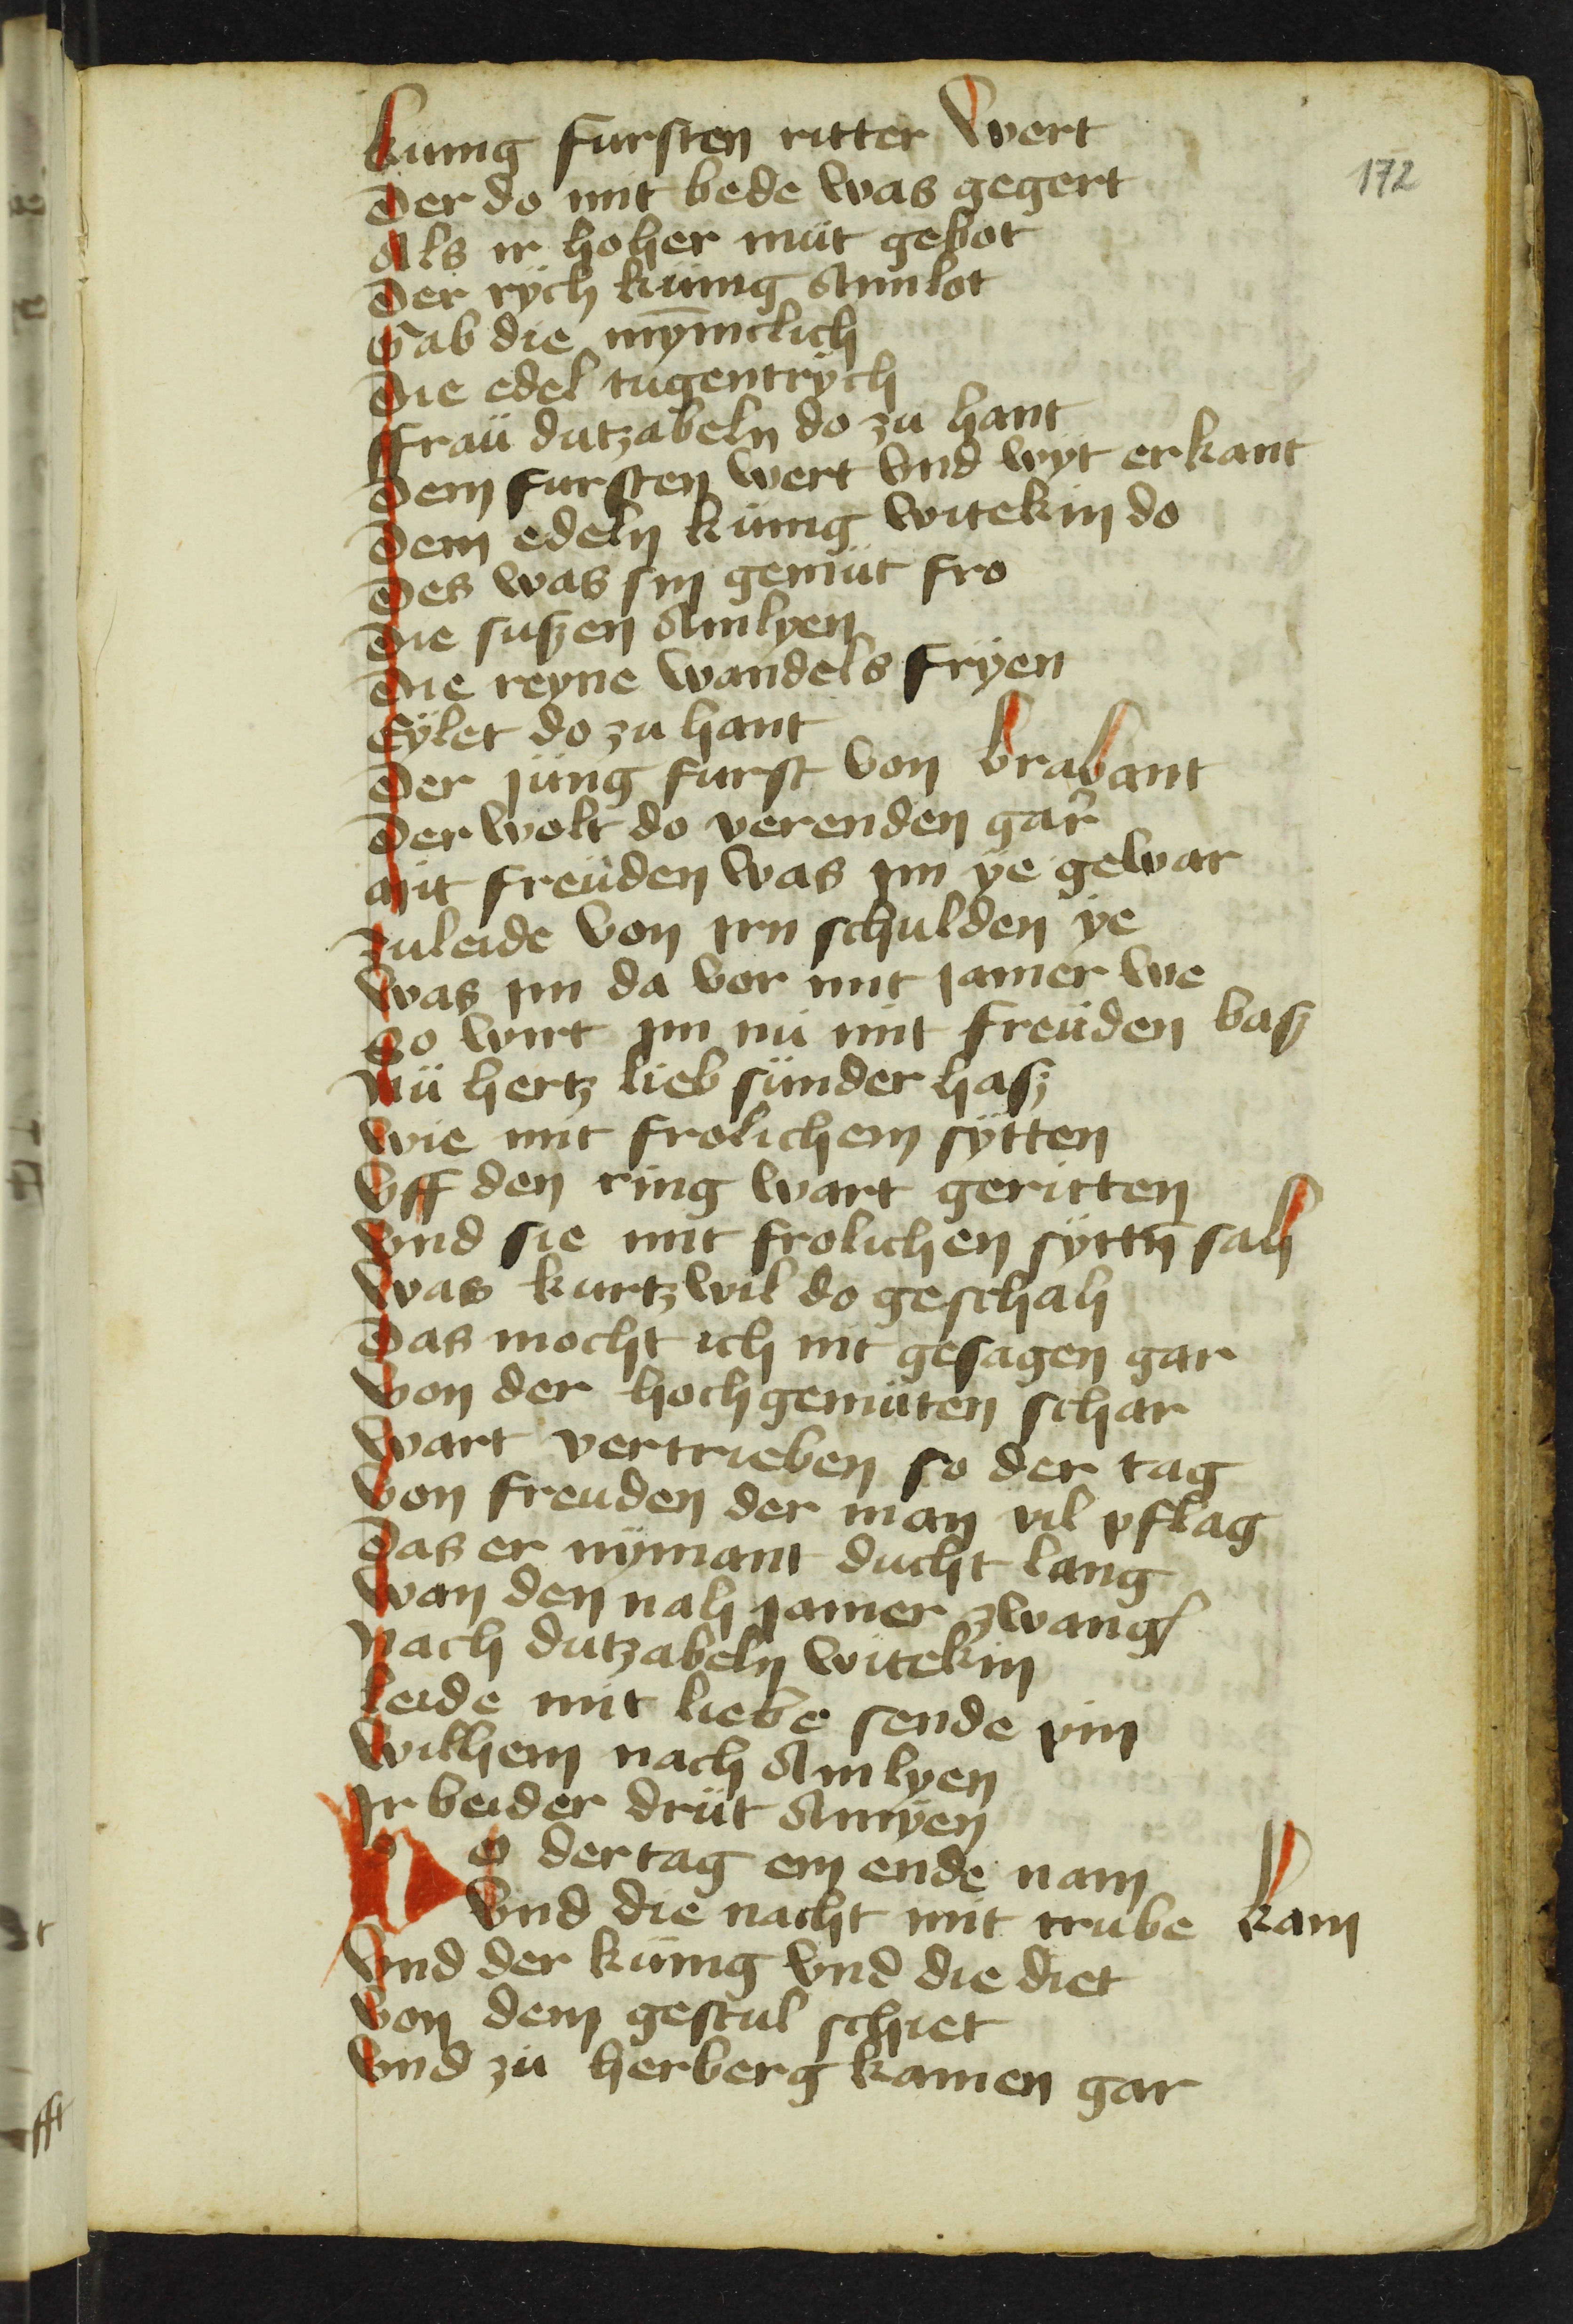 172
kunig fursten ritter wert
Der do mit bede was gegert
Als ir hoher müt gebot
Der rÿch künig Amlot
Gab die mȳnıclich
Die edel tugentrÿch
ffraü dutzabeln do zu hant
Dem fursten wert vnd wyt erkant
Dem edeln künig witekin do
Des was sin gemüt fro
Die suszen Amlyen
Die reyne wandels frÿen
Eÿlet do zu hant
Der jüng furst von brabant
Der wolt do verenden gar
Mit freüden was im ÿe gewar
Zuleide von irn schulden ÿe
Was im da vor mit jamer we
So wirt im nü mit freüden basz
Nü hertz lieb sünder hasz
Wie mit frolichem sÿtten
Vff den ring wart geritten
Vnd sie mit frolichen sÿttn̄ sah
Was kurtzwil do geschah
Das mocht ich nit gesagen gar
Von der hochgemüten schar
Wart vertrieben so der tag
Von freuden der man vil pflag
Das er nÿmant ducht lang
Wan den nah jamer zwang
Nach dutzabeln witekin
Leide mit liebe sende pin
Wilhem nach Amlyen
Ir beider drüt Amÿen
Do der tag ein ende nam
Vnd die nacht mit trube kam
Vnd der künig vnd die diet
Von dem gestul schiet
Vnd zü herberg kamen gar